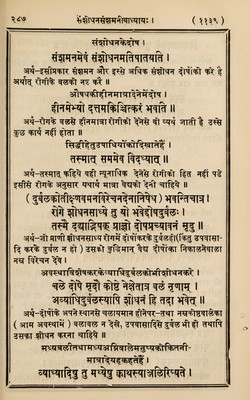 २८७ संशोधनसंशमनीयाध्यायः। (११३९)
संशोधनकेदोष।
संशमनमेवं संशोधनमतिपातयति।
अर्थ-इसीप्रकार संशमन और इससे अधिक संशोधन दोषोंको करे है
अर्थात् रोगीके बलको नष्ट करे ॥
औषधकीहीनमात्रादेनेमेंदोष
हीनमेभ्यो दत्तमकिंचित्करं भवति॥
अर्थ-रोगके बलसे हीनमात्रा रोगीको देनेसे वो व्यर्थ जाती है उस्से
कुछ कार्य नहीं होता॥
सिद्धीहेतुउपाधियोंकोदिखातेहैं
तस्मात् सममेव विदध्यात्॥
अर्थ-तस्मात् कहिये वही न्यूनाधिक देनेसे रोगीको हित नहीं पडे
इसीसे रोगके अनुसार यथार्थ मात्रा वैद्यको देनी चाहिये॥
(दुर्बलकोतीक्ष्णवमनविरेचनदेनानिषेध) भवन्तिचात्र।
रोगे शोधनसाध्ये तु यो भवेद्दोषदुर्बलः।
तस्मै दद्याद्भिषक् प्राज्ञो दोषप्रच्यावनं मृदु॥
अर्थ-जो प्राणी शोधनसाध्य रोगमें दोषोंकरके दुर्बल हो (किंतु उपवासा-
दि करके दुर्बल न हो) उसको बुद्धिमान् वैद्य दोषोंका निकालनेवाला
नम्र विरेचन देवे।
अवस्थाविशेषकरकेव्याधिदुर्बलकोभीशोधनकरे।
चले दोषे मृदौ कोष्ठे नेक्षेतात्र बलं नृणाम्।
अव्याधिदुर्बलस्यापि शोधनं हि तदा भवेत्॥
अर्थ-दोषोंके अपने स्थानसे चलायमान होनेपर-तथा नम्रकोष्ठवालेका
(आम अवस्थामें) बलाबल न देखे, उपवासादिसे दुर्बल भी हो तथापि
उसका शोधन करना चाहिये॥
मध्यबलीतथामध्यअग्निवालेमनुष्यकीकितनी-
मात्रादेयहकहतेहैं।
व्याध्यादिषु तु मध्येषु क्वाथस्याञ्जलिरिष्यते।